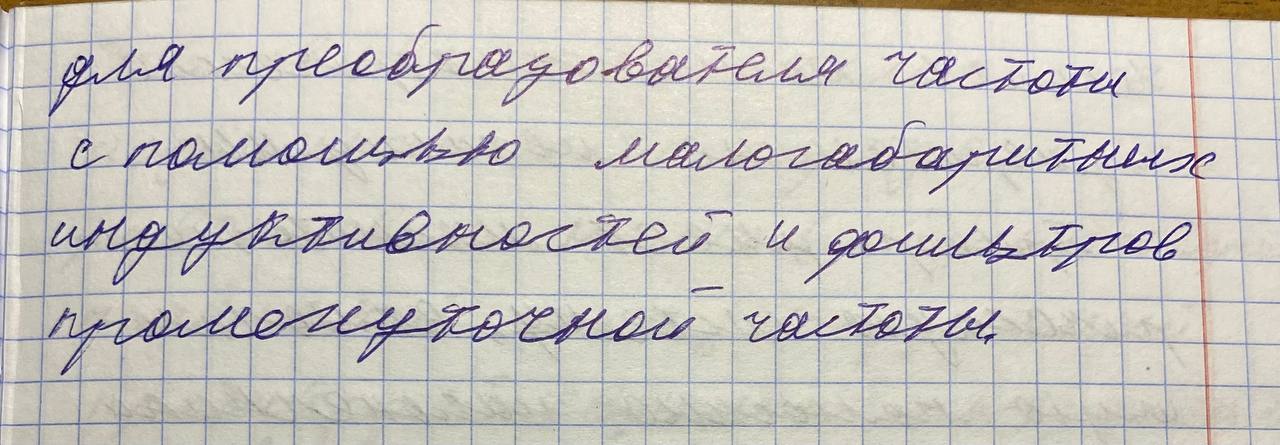 для преобразователя частоты
с помощью малогабаритных
индуктивностей и фильтров
промежуточной частоты.